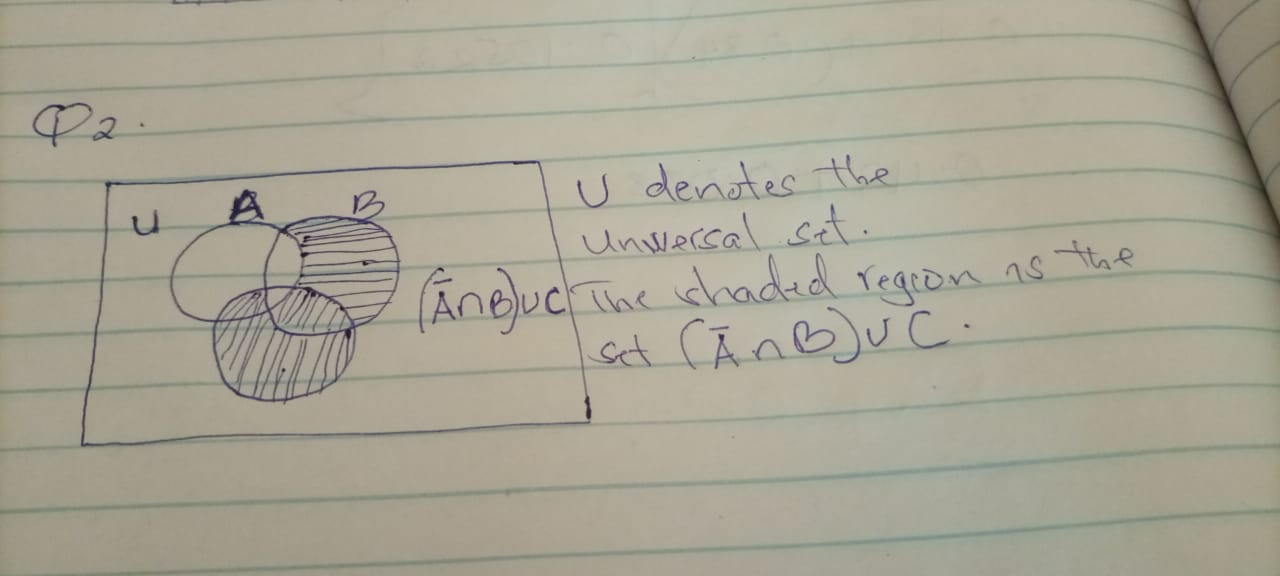 Q2.
U
A
B
(Ā∩B)∪C
U denotes the
Universal set.
The shaded region is the
set (Ā∩B)∪C.